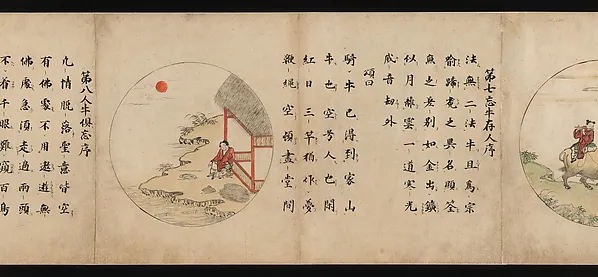 第七忘牛存人序
法無二法牛且為宗
喻蹄兎之異名顯筌
魚之差別如金出鑛
似月離雲一道寒光
威音劫外
頌曰
騎牛已得到家山
牛也空兮人也閑
紅日三竿猶作夢
鞭繩空頓草堂間
第八人牛俱忘序
凡情脱落聖意皆空
有佛處不用遨遊無
佛處急須走過兩頭
不着千眼難窺百鳥